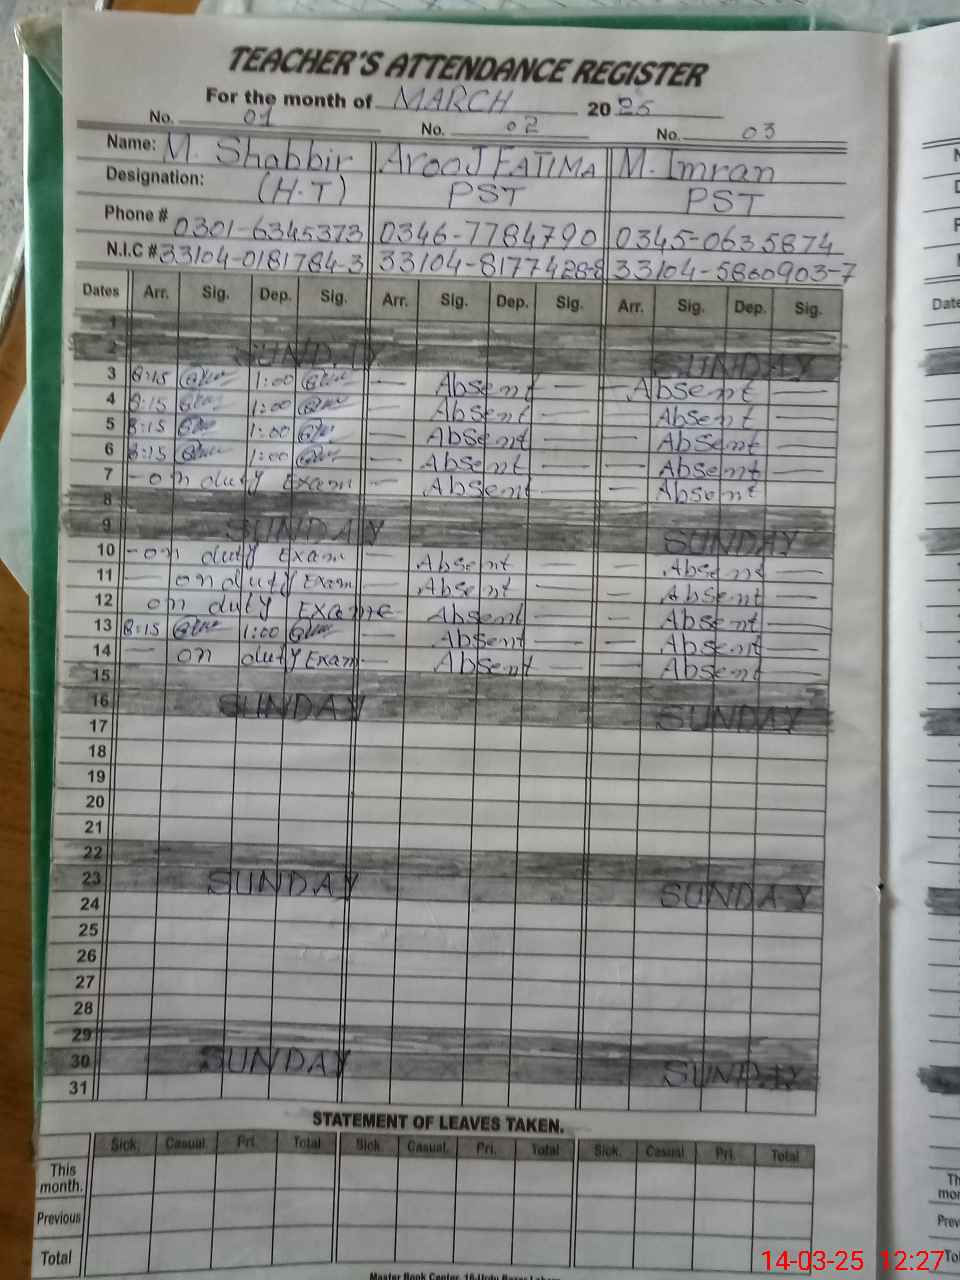 TEACHER'S ATTENDANCE REGISTER
For the month of MARCH 2025
No. 01 No. 02 No. 03
Name: M. Shabbir AROOJ FATIMA M. Imran
Designation: (H.T) PST PST
Phone # 0301-6345373 0346-7784790 0345-0635874
N.I.C # 33104-0181784-3 33104-8177428-8 33104-5860903-7
Dates Arr. Sig. Dep. Sig. Arr. Sig. Dep. Sig. Arr. Sig. Dep. Sig.
1
2 SUNDAY SUNDAY
3 8:15 1:00 — Absent — — Absent —
4 8:15 1:00 — Absent — Absent —
5 8:15 1:00 — Absent — — Absent —
6 8:15 1:00 — Absent — — Absent —
7 - on duty Exam — Absent — — Absent
8
9 SUNDAY SUNDAY
10 - on duty Exam — Absent — — Absent —
11 — on duty Exam — Absent — — Absent —
12 on duty Exam Absent — — Absent —
13 8:15 1:00 — Absent — — Absent —
14 — on duty Exam — Absent — — Absent —
15
16 SUNDAY SUNDAY
17
18
19
20
21
22
23 SUNDAY SUNDAY
24
25
26
27
28
29
30 SUNDAY SUNDAY
31
STATEMENT OF LEAVES TAKEN.
Sick. Casual. Pri. Total Sick. Casual. Pri. Total Sick. Casual Pri. Total
This
month.
Previous
Total
Master Book Center, 16-Urdu Bazar Lahore
14-03-25 12:27